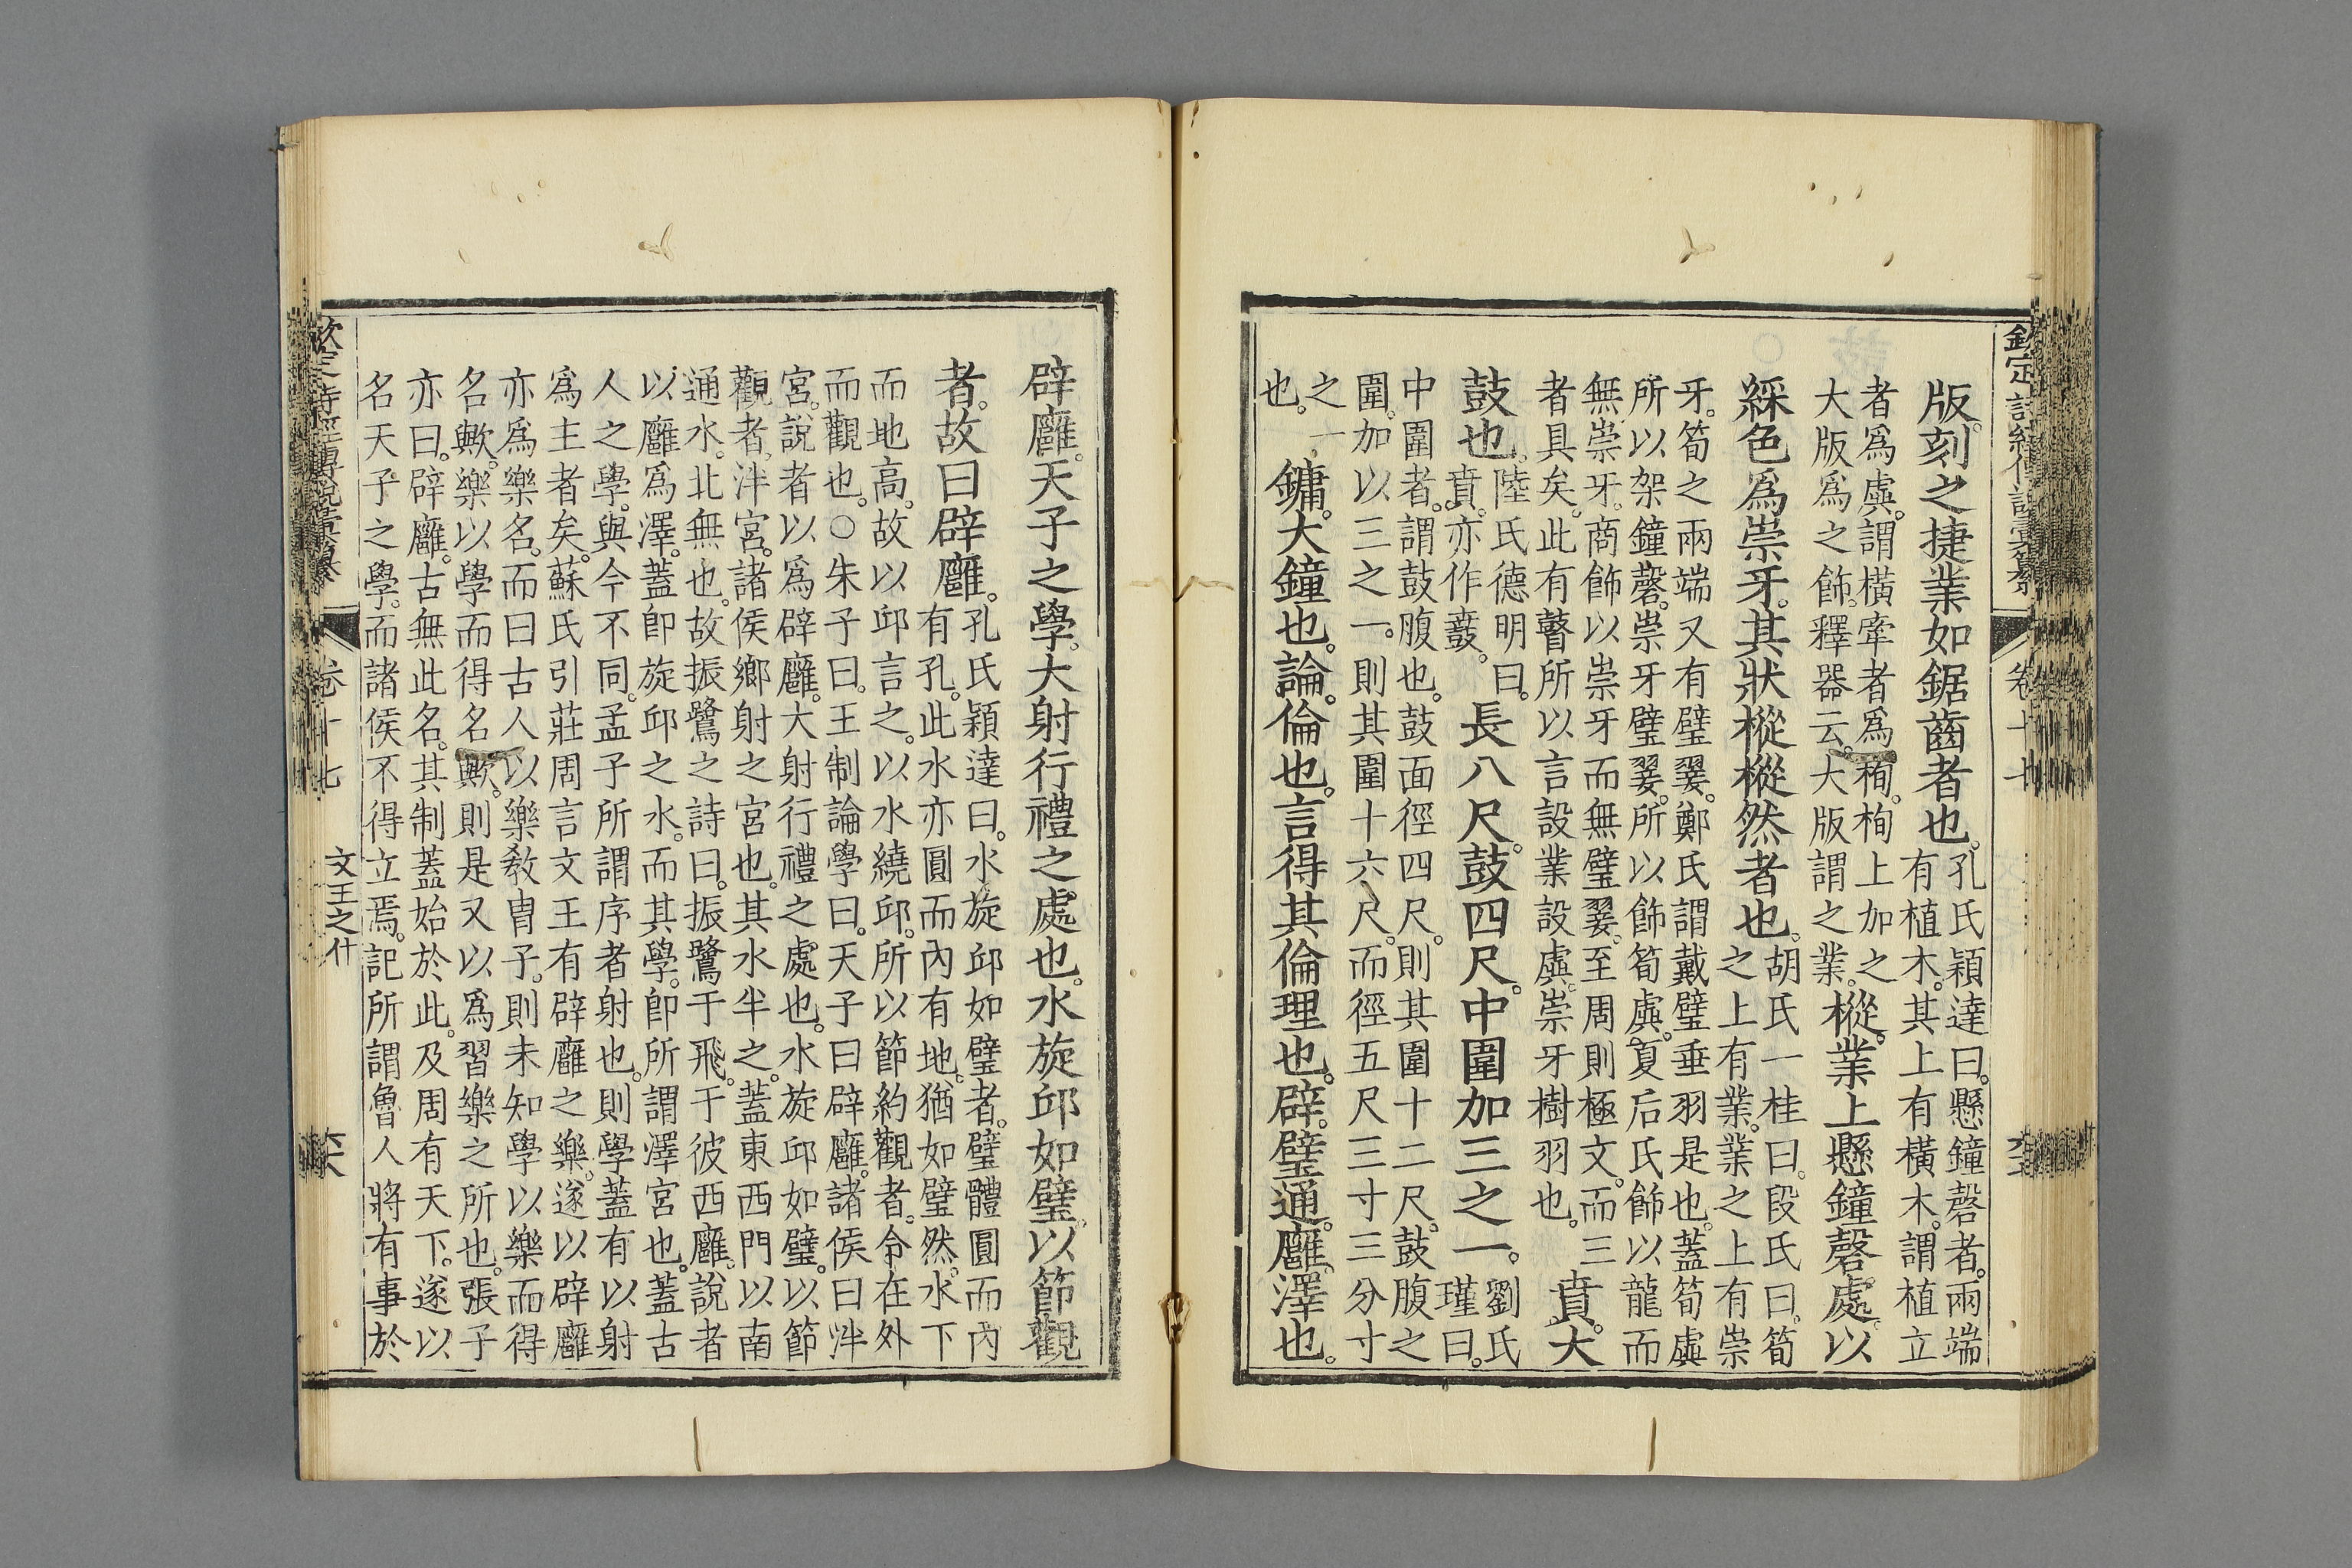 欽定詩經傳說彙纂 卷十七
版。刻之捷業如鋸齒者也。孔氏穎達曰。懸鐘磬者。兩端
有植木。其上有橫木。謂植立
者爲虡。謂橫牽者爲栒。栒上加之
大版爲之飾。釋器云。大版謂之業。樅。業上懸鐘磬處。以
綵色爲崇牙。其狀樅樅然者也。胡氏一桂曰。段氏曰。筍
之上有業。業之上有崇
牙。筍之兩端又有璧翣。鄭氏謂戴璧垂羽是也。蓋筍虡
所以架鐘磬。崇牙璧翣。所以飾筍虡。夏后氏飾以龍而
無崇牙。商飾以崇牙而無璧翣。至周則極文。而三
者具矣。此有瞽所以言設業設虡。崇牙樹羽也。賁。大
鼓也。陸氏德明曰。
賁。亦作鼖。長八尺。鼓四尺。中圍加三之一。劉氏
瑾曰。
中圍者。謂鼓腹也。鼓面徑四尺。則其圍十二尺。鼓腹之
圍。加以三之一。則其圍十六尺。而徑五尺三寸三分寸
之一
也。鏞。大鐘也。論。倫也。言得其倫理也。辟。璧通。廱。澤也。
辟廱。天子之學。大射行禮之處也。水旋邱如璧。以節觀
者。故曰辟廱。孔氏穎達曰。水旋邱如璧者。璧體圓而內
有孔。此水亦圓而內有地。猶如璧然。水下
而地高。故以邱言之。以水繞邱。所以節約觀者。令在外
而觀也。○朱子曰。王制論學曰。天子曰辟廱。諸侯曰泮
宮。說者以爲辟廱。大射行禮之處也。水旋邱如璧。以節
觀者。泮宮。諸侯鄉射之宮也。其水半之。蓋東西門以南
通水。北無也。故振鷺之詩曰。振鷺于飛。于彼西廱。說者
以廱爲澤。蓋卽旋邱之水。而其學。卽所謂澤宮也。蓋古
人之學。與今不同。孟子所謂序者射也。則學蓋有以射
爲主者矣。蘇氏引莊周言文王有辟廱之樂。遂以辟廱
亦爲樂名。而曰古人以樂敎胄子。則未知學以樂而得
名歟。樂以學而得名歟。則是又以爲習樂之所也。張子
亦曰。辟廱。古無此名。其制蓋始於此。及周有天下。遂以
名天子之學。而諸侯不得立焉。記所謂魯人將有事於
卷十七 文王之什